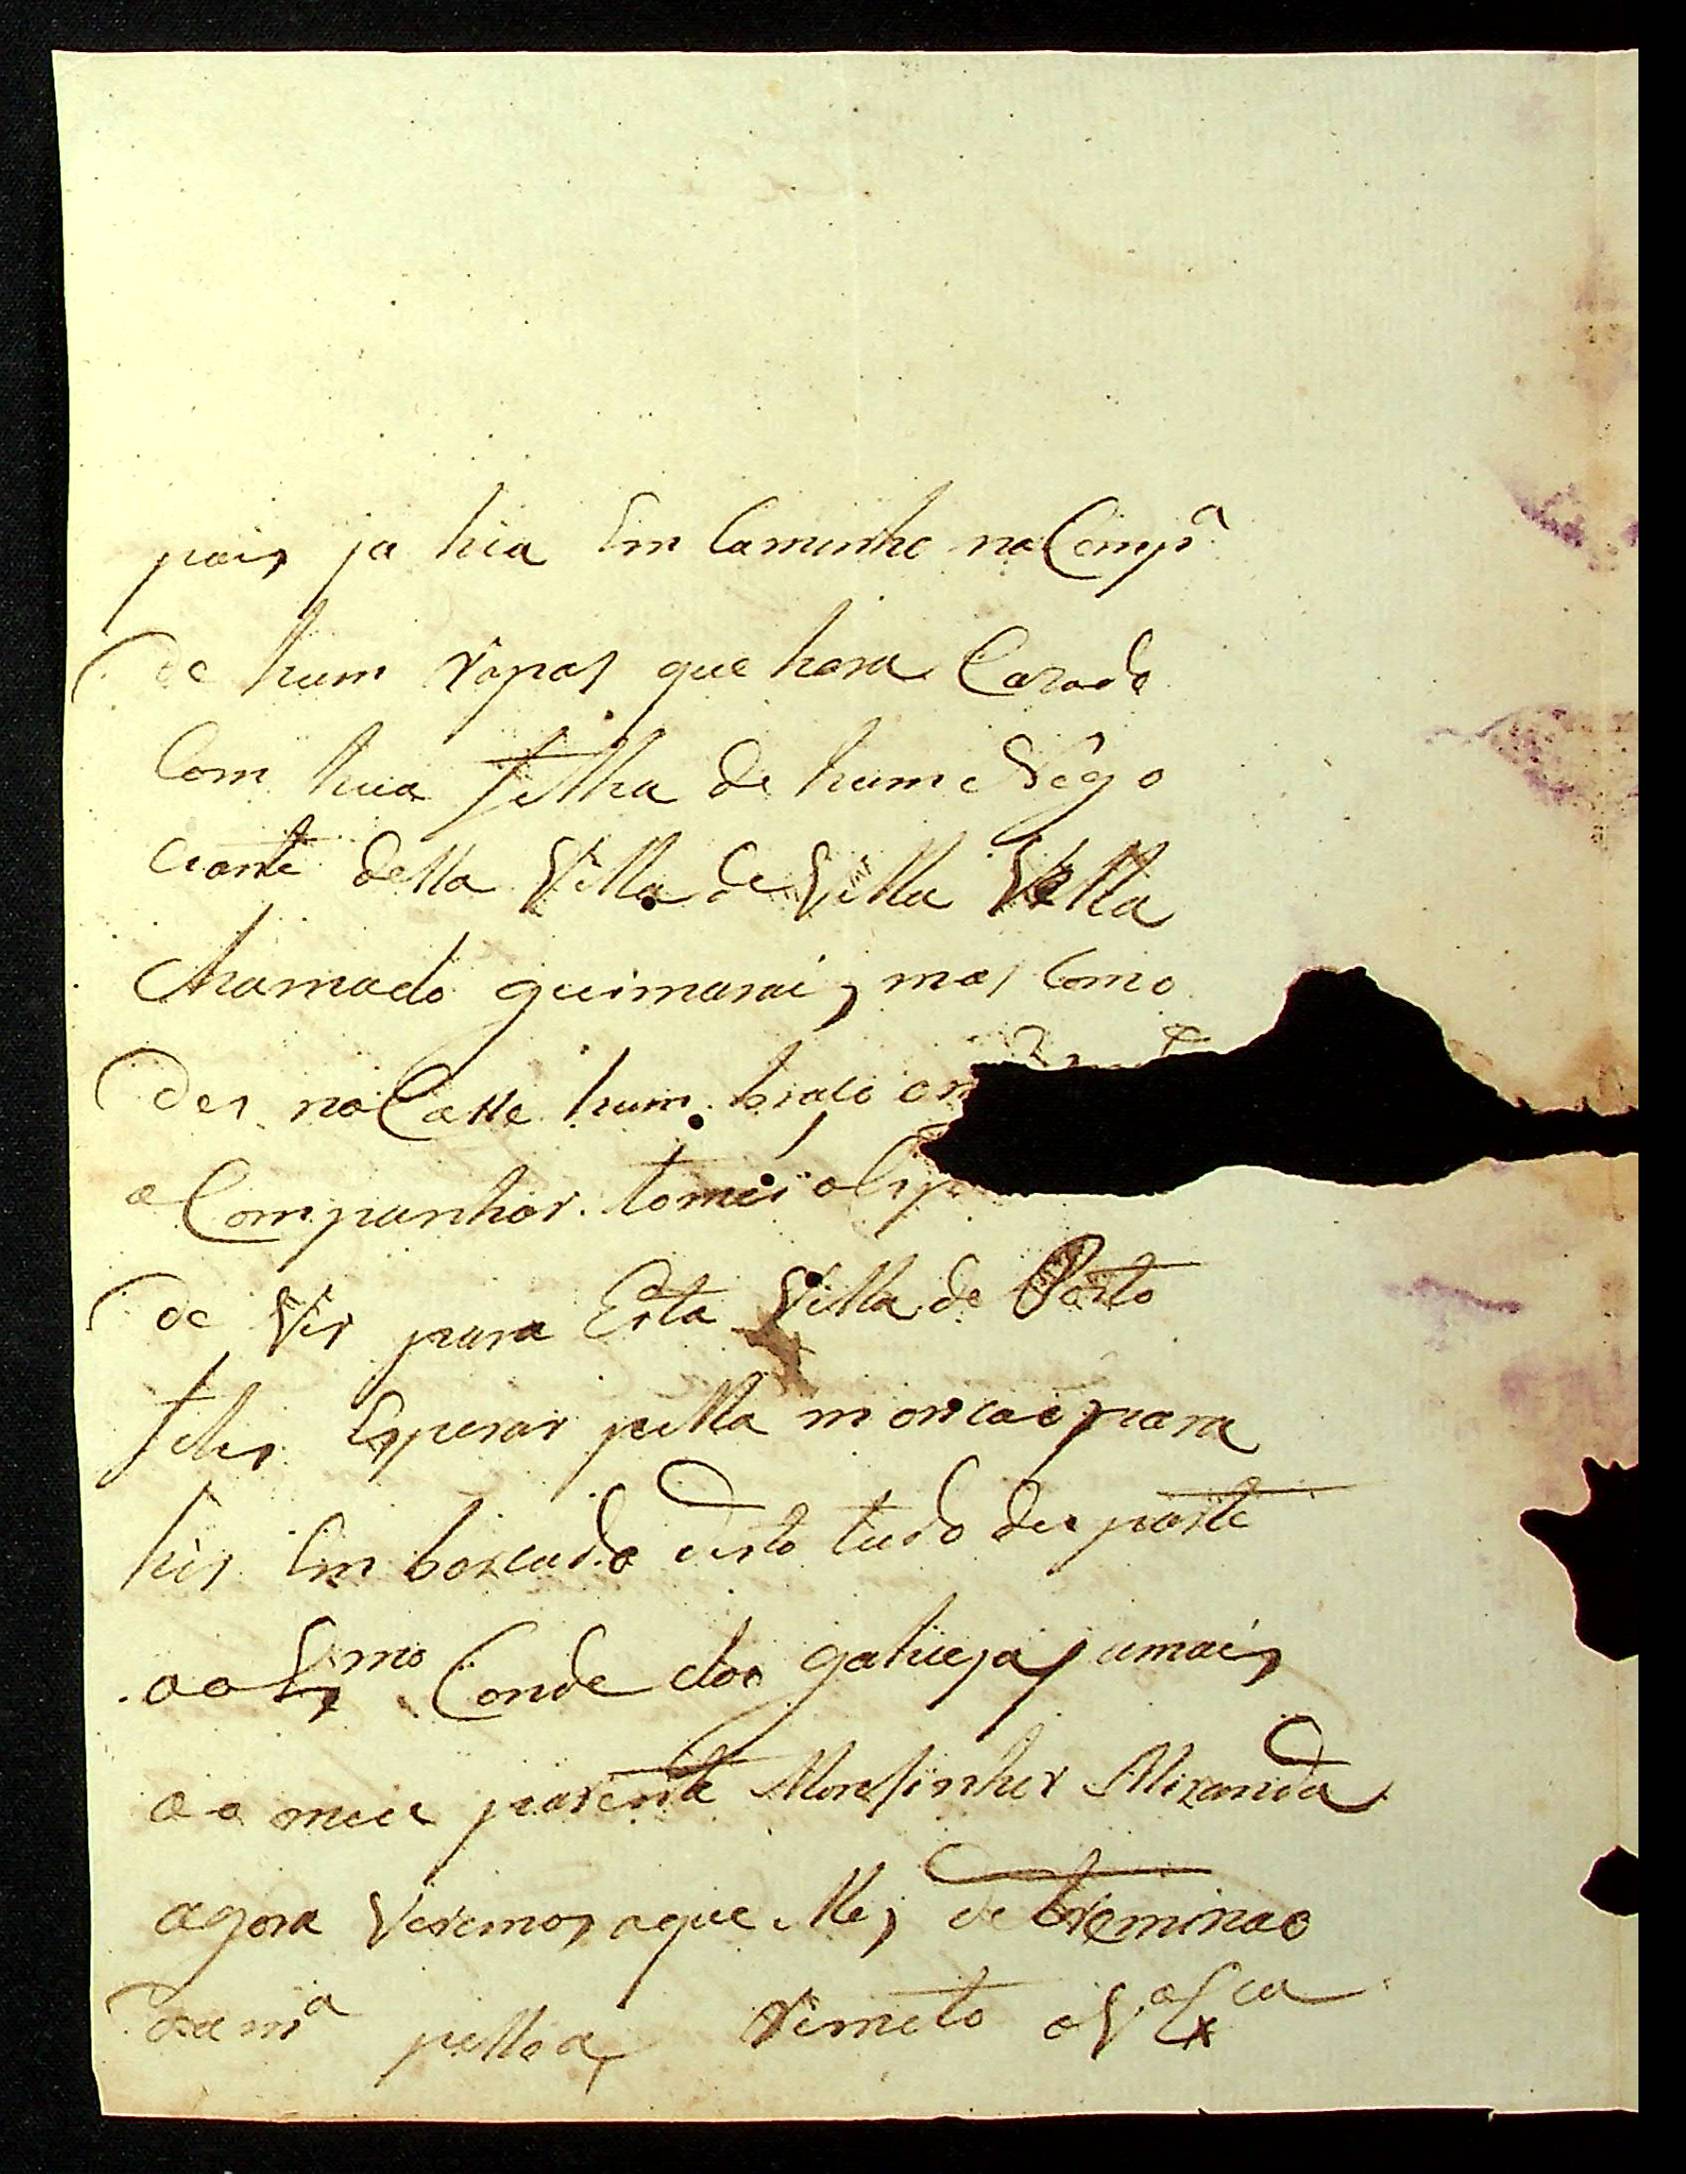 pois ja hia Em Caminho na Compª
de hum rapas que hera Cazado
Com hua filha de hum Nego
ciante della Villa de Villa Vella
chamado guimarais, mas Como
des na Casse hum. braco
aCompanhar. tomei
de Vir para Esta Villa de Porto
felis Esperar pella moncaõ para
hir Em barcado disto tudo dei parte
ao Exmo Conde dos galveias, e mais
ao meu parente Monsinhor Miranda
agora Veremos aque elles detreminaõ
da mª pessoa, remeto a V.ª Exca